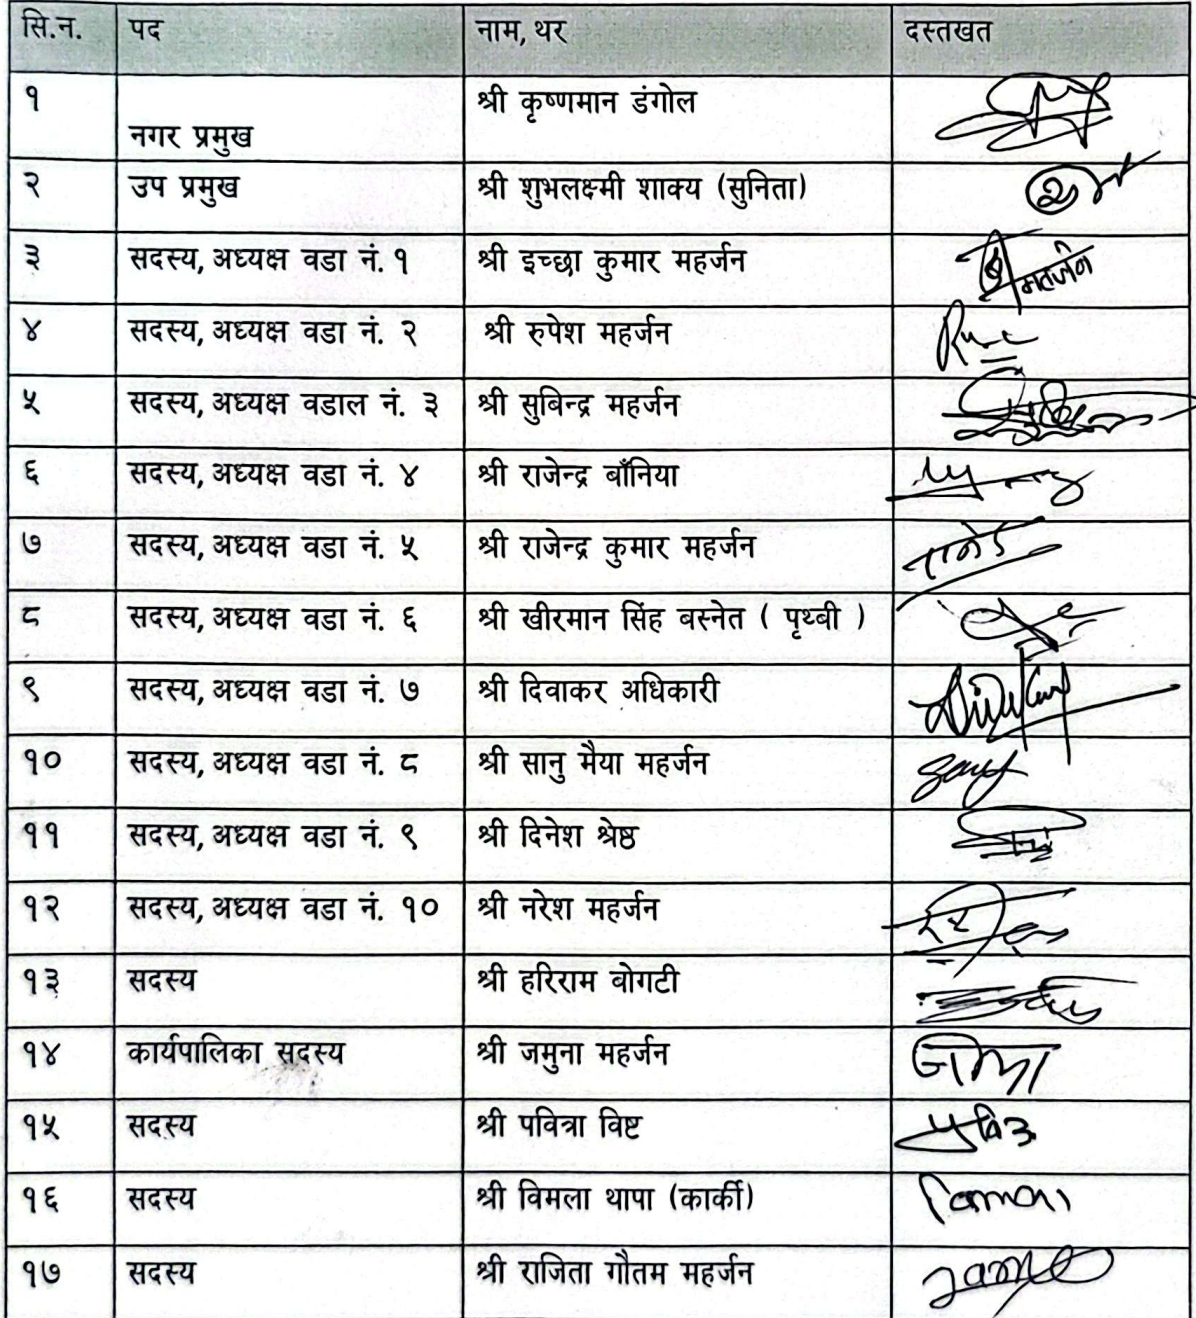 सि.न. पद नाम, थर दस्तखत
१ नगर प्रमुख श्री कृष्णमान डंगोल
२ उप प्रमुख श्री शुभलक्ष्मी शाक्य (सुनिता)
३ सदस्य, अध्यक्ष वडा नं. १ श्री इच्छा कुमार महर्जन महर्जन
४ सदस्य, अध्यक्ष वडा नं. २ श्री रुपेश महर्जन
५ सदस्य, अध्यक्ष वडाल नं. ३ श्री सुबिन्द्र महर्जन
६ सदस्य, अध्यक्ष वडा नं. ४ श्री राजेन्द्र बाँनिया
७ सदस्य, अध्यक्ष वडा नं. ५ श्री राजेन्द्र कुमार महर्जन
८ सदस्य, अध्यक्ष वडा नं. ६ श्री खीरमान सिंह बस्नेत ( पृथ्बी )
९ सदस्य, अध्यक्ष वडा नं. ७ श्री दिवाकर अधिकारी
१० सदस्य, अध्यक्ष वडा नं. ८ श्री सानु मैया महर्जन
११ सदस्य, अध्यक्ष वडा नं. ९ श्री दिनेश श्रेष्ठ
१२ सदस्य, अध्यक्ष वडा नं. १० श्री नरेश महर्जन
१३ सदस्य श्री हरिराम बोगटी
१४ कार्यपालिका सदस्य श्री जमुना महर्जन
१५ सदस्य श्री पवित्रा विष्ट
१६ सदस्य श्री विमला थापा (कार्की)
१७ सदस्य श्री राजिता गौतम महर्जन